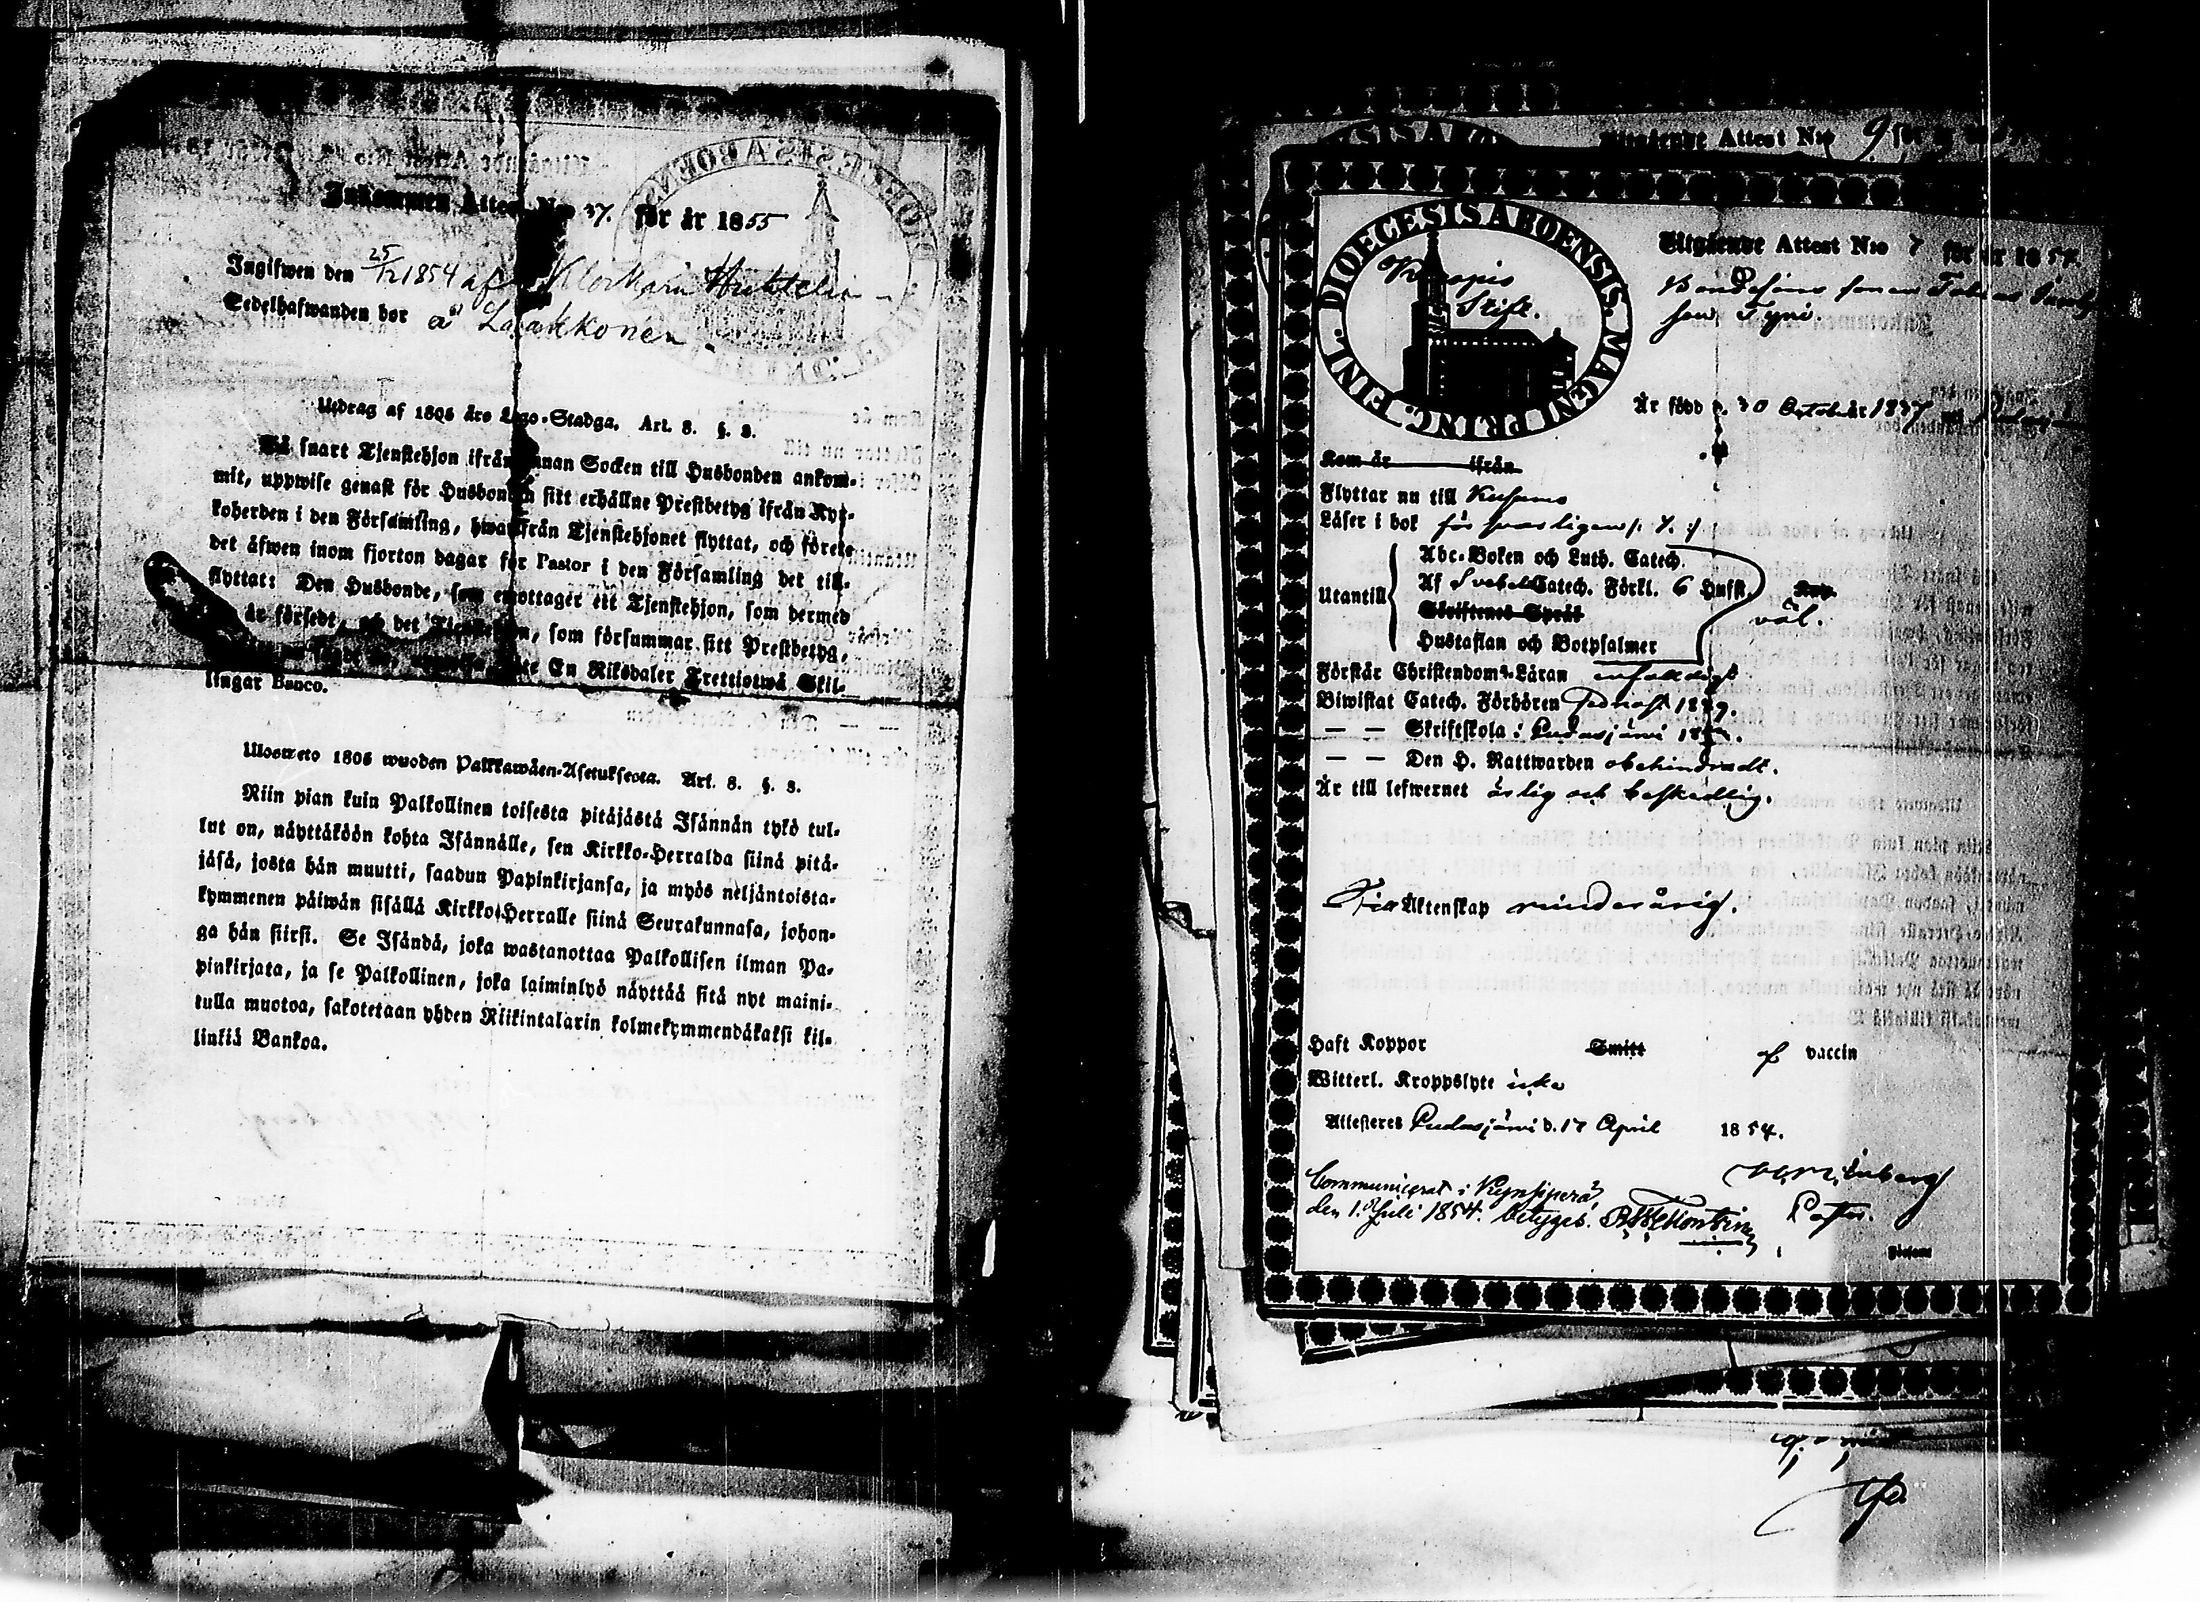 Inkommen Attest N:o 37. för år 1855
Ingifwen den 25/12 1854 af Klockarn Huhtelin
Sedelhafwanden bor å Laakkonen.
Utdrag af 1805 års Lego-Stadga. Art. 8. §. 3.
Så snart Tjenstehjon ifrån annan Socken till Husbonden ankom-
mit, uppwise genast för Husbonden sitt erhållne Prestbetyg ifrån Kyr-
koherden i den Församling, hwarifrån Tjenstehjonet flyttat, och förete
det äfwen inom fjorton dagar för Pastor i den Församling det till-
flyttat: Den Husbonde, som emottager ett Tjenstehjon, som dermed
är försedt, och det Tjenstehjon, som försummar sitt Prestbetyg,
En Riksdaler Trettiotwå Skil-
lingar Banco.
Ulosweto 1805 wuoden Palkkawäen-Asetuksesta. Art. 8. §. 3.
Niin pian kuin Palkollinen toisesta pitäjästä Isännän tykö tul-
lut on, näyttäköön kohta Isännälle, sen Kirkko-Herralda siinä pitä-
jäsä, josta hän muutti, saadun Papinkirjansa, ja myös neljäntoista-
kymmenen päiwän sisällä Kirkko-Herralle siinä Seurakunnasa, johon-
ga hän siirsi. Se Isändä, joka wastanottaa Palkollisen ilman Pa-
pinkirjata, ja se Palkollinen, joka laiminlyö näyttää sitä nyt maini-
tulla muotoa, sakotetaan yhden Riikintalarin kolmekymmendäkaksi kil-
linkiä Bankoa.
Utgående Attest N:o 9 för
DIOECESIS ABOENSIS. MAGNI PRINC. FINL.
Kuopio
Stift.
Utgående Attest N:o 7 för år 1854.
Bondesons sonen Tobias
son Tyni.
Är född d. 30 October 1837
Kom år ifrån
Flyttar nu till Kusamo
Läser i bok försvarligen
Utantill
Abc-Boken och Luth. Catech.
Af Svebel. Catech. Förkl. 6 Hufst.
Skriftenes Språk
Hustaflan och Botpsalmer
väl.
Förstår Christendoms-Läran enfaldigt
Biwistat Catech. Förhören
— — Skriftskola i Pudasjärvi
— — Den H. Nattwarden obehindradt.
Är till lefwernet ärlig och beskedlig.
Till Äktenskap minderårig.
Haft Koppor Smitt af vaccin
Witterl. Kroppslyte icke
Attesteres Pudasjärvi d. 17 April 1854.
Pastor.
Communicerat i Kynsiperä
den 1. Juli 1854. betygas.